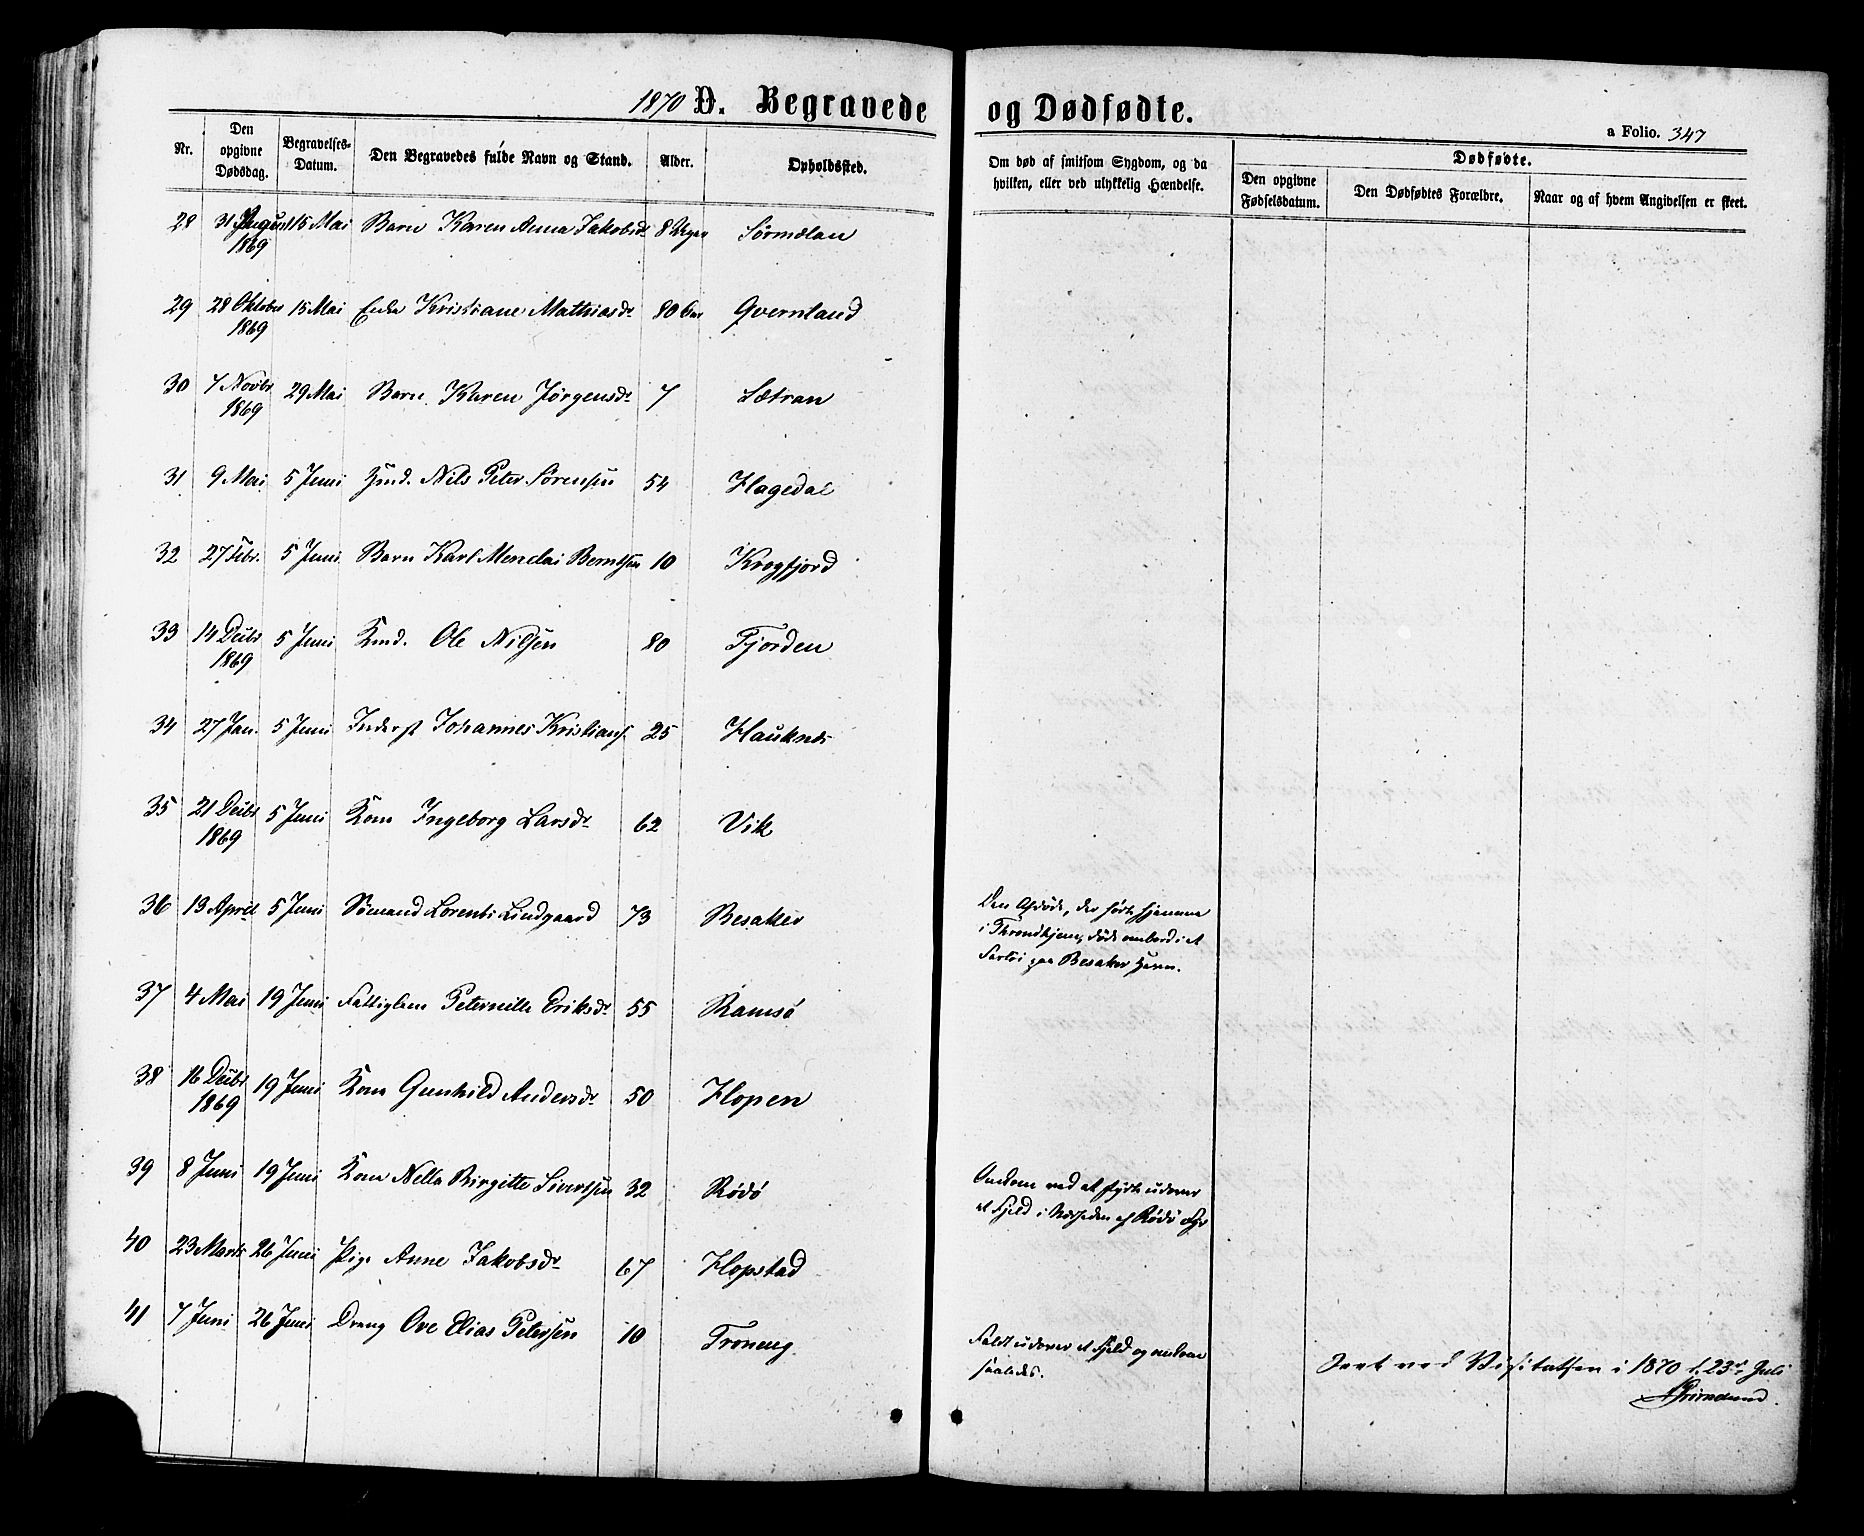 1870 D. Begravede og Dødfødte.
a Folio. 347
Nr. Den opgivne Dødsdag. Begravelses-Datum. Den Begravedes fulde Navn og Stand. Alder. Opholdssted. Om død af smitsom Sygdom, og da hvilken, eller ved ulykkelig Hændelse. Dødfødte. Den opgivne Fødselsdatum. Den Dødfødtes Forældre. Naar og af hvem Angivelsen er skeet.
28 31 August 15 Mai Barn Karen Anna Jakobsdr 8 Uger Sørmælan
1869
29 28 Oktober 15 Mai Enke Kristiane Mathiasdr 80 Qvernland
1869
30 7 Novbr 29 Mai Barn Karen Jørgensdr 7 Sætran
1869
31 9 Mai 5 Juni Gmd. Nils Peter Sørensen 54 Hagedal
32 27 Febr. 5 Juni Barn Karl Menelai Berntsen 10 Krogfjord
33 14 Decbr 5 Juni Kmd. Ole Nilsen 80 Fjorden
1869
34 27 Jan. 5 Juni Inderst Johannes Kristians. 25 Hauknes
35 21 Decbr 5 Juni Kone Ingeborg Larsdr 62 Vik
1869
36 13 April 5 Juni Sømand Lorents Lindgaard 73 Besaker Den Afdøde, der hørte hjemme
i Throndhjem, døde ombord i et
Fartøi paa Besaker Havn.
37 4 Mai 19 Juni Fattiglem Peternille Eriksdr 55 Ramsø
38 16 Decbr 19 Juni Kone Gunhild Andersdr 50 Hopen
1869
39 8 Juni 19 Juni Kone Nella Birgitte Sivertsen 32 Rødø Omkom ved at styrte udover
et Fjeld i Nærheden af Rødø
40 23 Marts 26 Juni Pige Anne Jakobsdr 67 Hopstad
41 7 Juni 26 Juni Dreng Ove Elias Petersen 10 Troneng. Faldt udover et Fjeld og omkom
saaledes.
Seet ved Visitatsen i 1870 d. 23de Juli